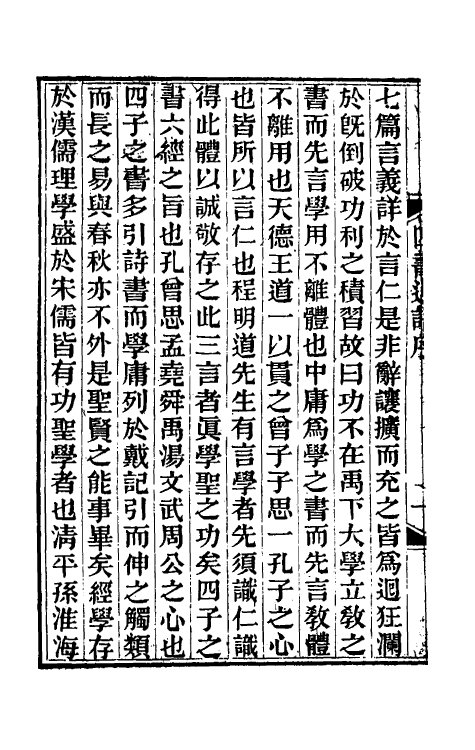 七篇言義詳於言仁是非辭讓擴而充之皆爲迴狂瀾
於旣倒破功利之積習故曰功不在禹下大學立敎之
書而先言學用不離體也中庸爲學之書而先言敎體
不離用也天德王道一以貫之曾子子思一孔子之心
也皆所以言仁也程明道先生有言學者先須識仁識
得此體以誠敬存之此三言者眞學聖之功矣四子之
書六經之旨也孔曾思孟堯舜禹湯文武周公之心也
四子之書多引詩書而學庸列於戴記引而伸之觸類
而長之易與春秋亦不外是聖賢之能事畢矣經學存
於漢儒理學盛於宋儒皆有功聖學者也淸平孫淮海